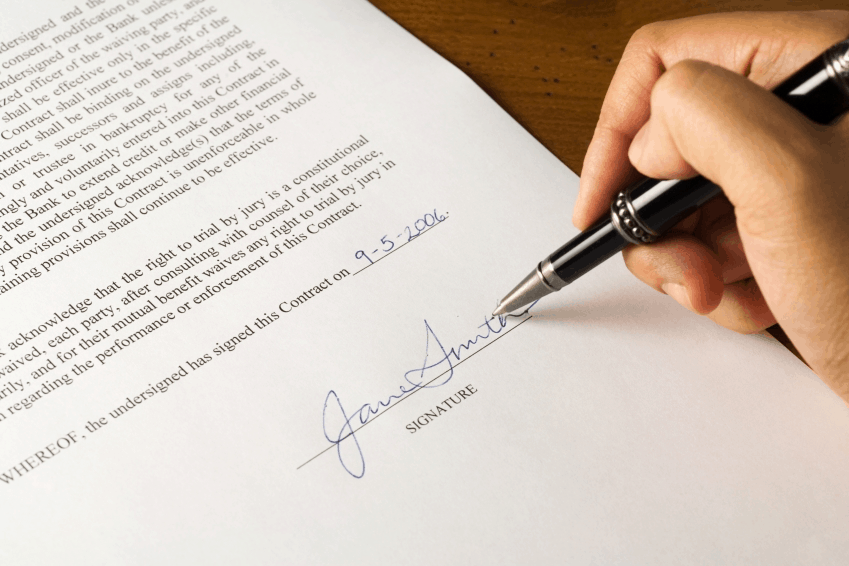 undersigned and the
consent, modification or
undersigned or the Bank unless
officer of the waiving party, and
shall be effective only in the specific
Contract shall inure to the benefit of the
shall be binding on the undersigned
successors and assigns including,
or trustee in bankruptcy for any of the
and voluntarily entered into this Contract in
the Bank to extend credit or make other financial
the undersigned acknowledge(s) that the terms of
provision of this Contract is unenforceable in whole
provisions shall continue to be effective.
acknowledge that the right to trial by jury is a constitutional
waived, each party, after consulting with counsel of their choice,
and for their mutual benefit waives any right to trial by jury in
regarding the performance or enforcement of this Contract.
WHEREOF, the undersigned has signed this Contract on 9-5-2006.
Jane Smith
SIGNATURE